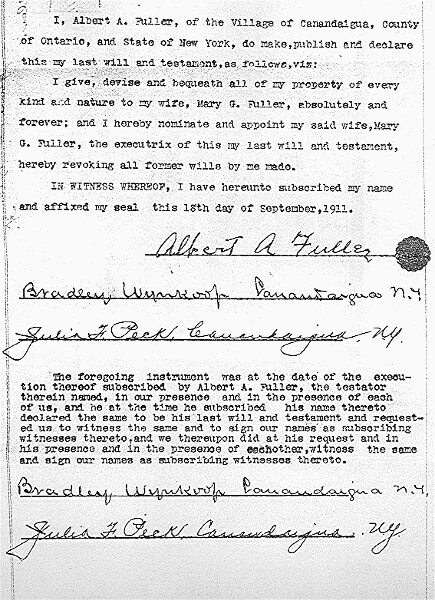 I, Albert A. Fuller, of the Village of Canandaigua, County
of Ontario, and State of New York, do make,publish and declare
this my last will and testament,as follows,viz:
I give, devise and bequeath all of my property of every
kind and nature to my wife, Mary G. Fuller, absolutely and
forever; and I hereby nominate and appoint my said wife,Mary
G. Fuller, the executrix of this my last will and testament,
hereby revoking all former wills by me made.
IN WITNESS WHEREOF, I have hereunto subscribed my name
and affixed my seal this 18th day of September,1911.
Albert A Fuller
Bradley Wynkoop Canandaigua N.Y.
Julia F. Peck, Canandaigua, N.Y.
The foregoing instrument was at the date of the execu-
tion thereof subscribed by Albert A. Fuller, the testator
therein named, in our presence and in the presence of each
of us, and he at the time he subscribed his name thereto
declared the same to be his last will and testament and request-
ed us to witness the same and to sign our names as subscribing
witnesses thereto,and we thereupon did at his request and in
his presence and in the presence of eachother,witness the same
and sign our names as subscribing witnesses thereto.
Bradley Wynkoop Canandaigua N.Y.
Julia F. Peck, Canandaigua, N.Y.